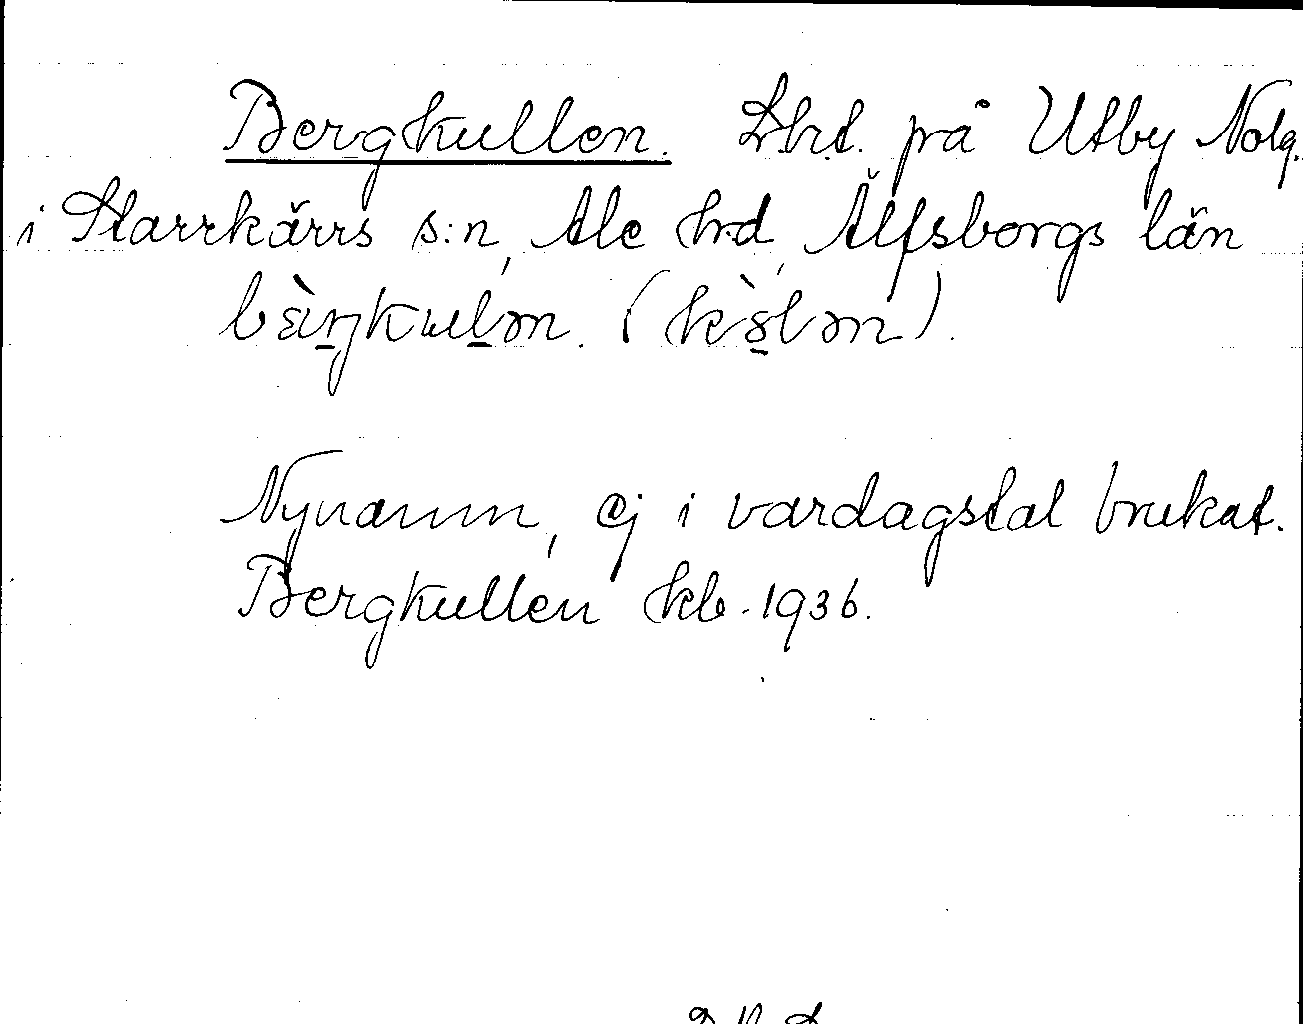 Bergkullen. Lht. på Utby Nolg.
i Starrkärrs s:n, Ale hd, Älfsborgs län
bɛ̀rŋkulən. (kòlən).
Nynamn, ej i vardagstal brukat.
Bergkullen kb. 1936.